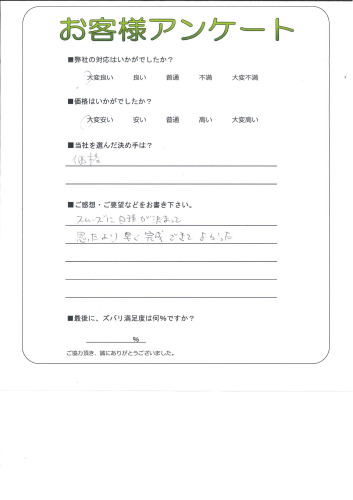 お客様アンケート
■弊社の対応はいかがでしたか？
大変良い 良い 普通 不満 大変不満
■価格はいかがでしたか？
大変安い 安い 普通 高い 大変高い
■当社を選んだ決め手は？
価格
■ご感想・ご要望などをお書き下さい。
スムーズに日程が決まって
思ったより早く完成できてよかった
■最後に、ズバリ満足度は何％ですか？
％
ご協力頂き、誠にありがとうございました。